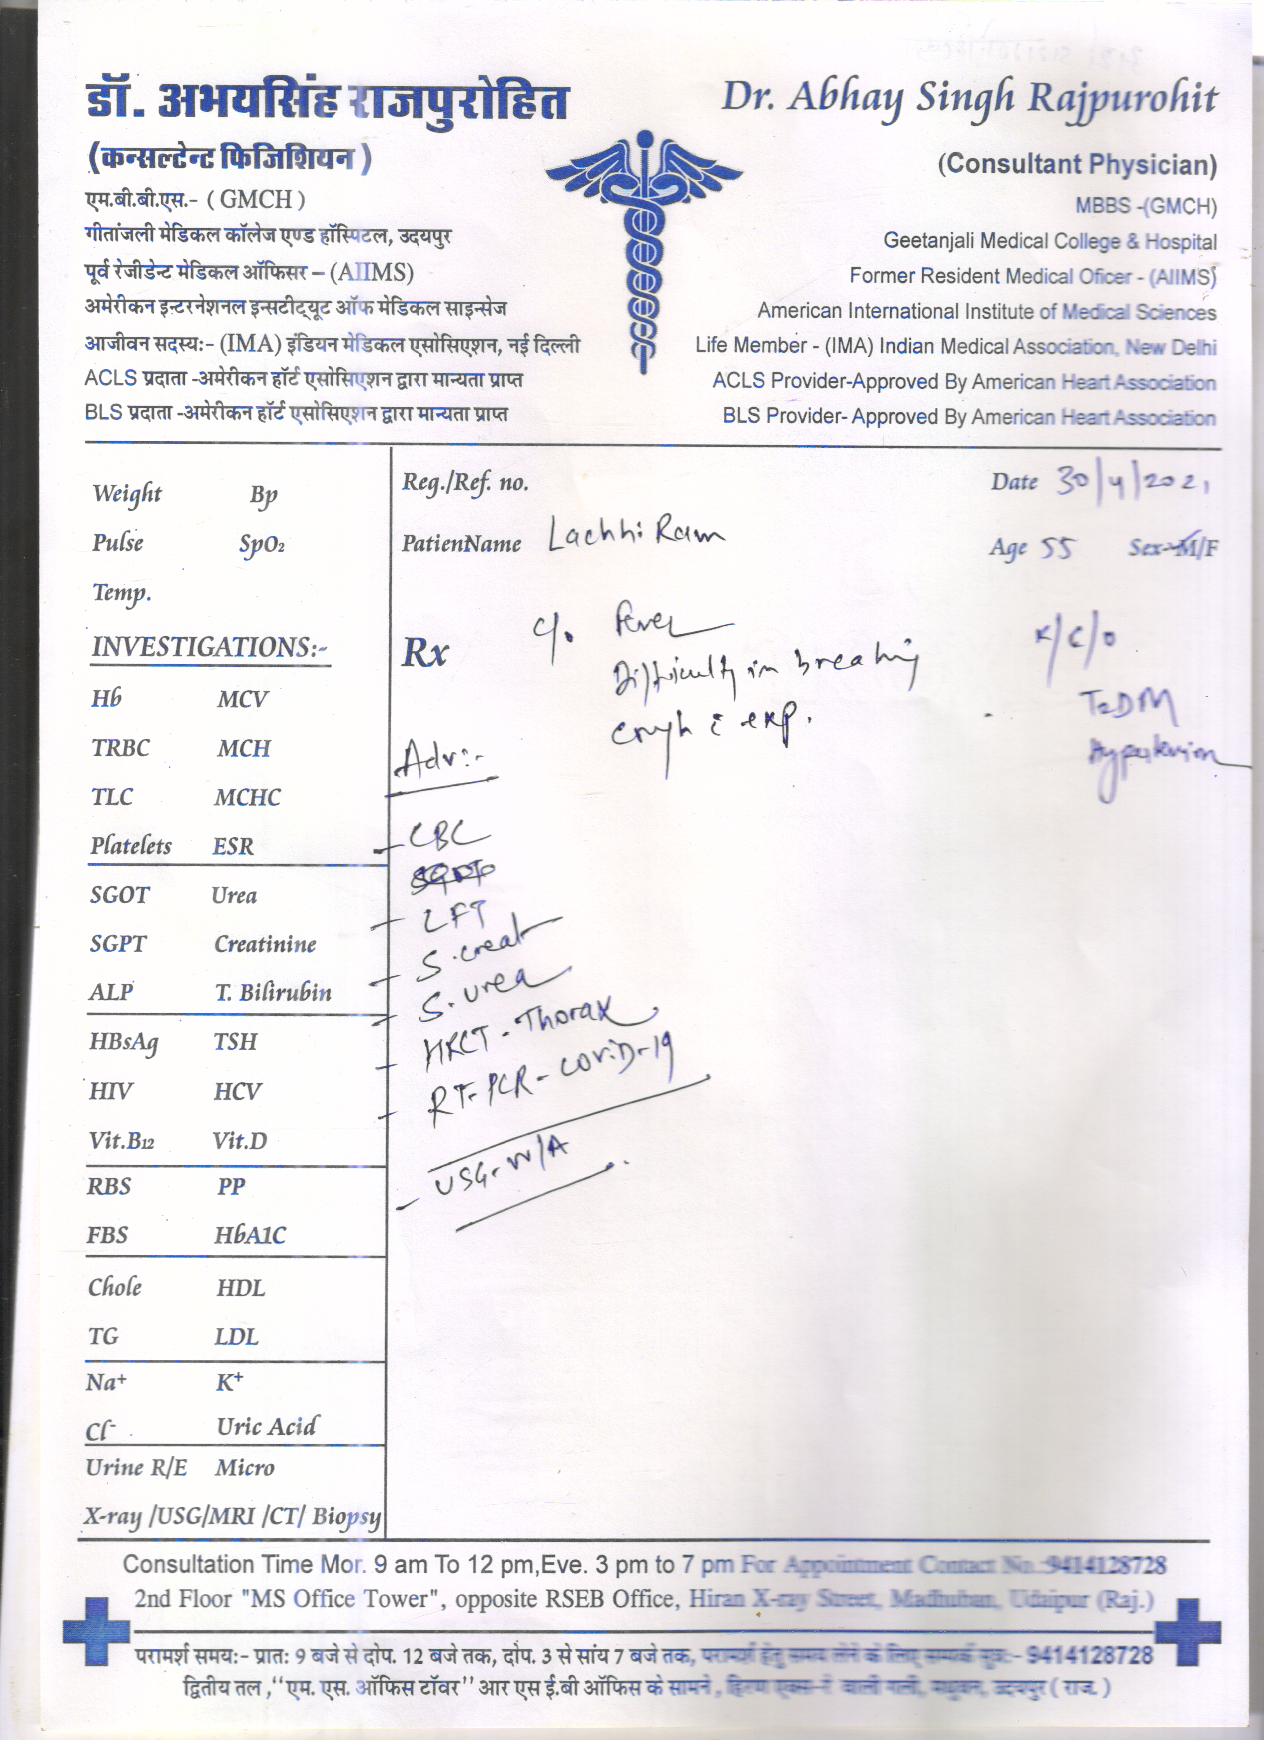 डॉ. अभयसिंह राजपुरोहित
(कन्सल्टेन्ट फिजिशियन)
एम.बी.बी.एस.- ( GMCH )
गीतांजली मेडिकल कॉलेज एण्ड हॉस्पिटल, उदयपुर
पूर्व रेजीडेन्ट मेडिकल ऑफिसर – (AIIMS)
अमेरीकन इन्टरनेशनल इन्सटीट्यूट ऑफ मेडिकल साइन्सेज
आजीवन सदस्य:- (IMA) इंडियन मेडिकल एसोसिएशन, नई दिल्ली
ACLS प्रदाता -अमेरीकन हॉर्ट एसोसिएशन द्वारा मान्यता प्राप्त
BLS प्रदाता -अमेरीकन हॉर्ट एसोसिएशन द्वारा मान्यता प्राप्त
Dr. Abhay Singh Rajpurohit
(Consultant Physician)
MBBS -(GMCH)
Geetanjali Medical College & Hospital
Former Resident Medical Oficer - (AIIMS)
American International Institute of Medical Sciences
Life Member - (IMA) Indian Medical Association, New Delhi
ACLS Provider-Approved By American Heart Association
BLS Provider- Approved By American Heart Association
Weight Bp
Pulse SpO₂
Temp.
INVESTIGATIONS:-
Hb MCV
TRBC MCH
TLC MCHC
Platelets ESR
SGOT Urea
SGPT Creatinine
ALP T. Bilirubin
HBsAg TSH
HIV HCV
Vit.B₁₂ Vit.D
RBS PP
FBS HbA1C
Chole HDL
TG LDL
Na⁺ K⁺
Cl⁻ Uric Acid
Urine R/E Micro
X-ray /USG/MRI /CT/ Biopsy
Reg./Ref. no. Date 30/4/2021
PatienName Lachhi Ram Age 55 Sex-M/F
Rx
c/o. fever
Difficulty in breathing
cough c exp.
K/C/O
T2DM
Hypertension
Adv:-
CBC
LFT
S. creat
S. urea
HRCT - Thorax
RT-PCR - COVID-19
USG - W/A
Consultation Time Mor. 9 am To 12 pm,Eve. 3 pm to 7 pm For Appointment Contact No.:9414128728
2nd Floor "MS Office Tower", opposite RSEB Office, Hiran X-ray Street, Madhuban, Udaipur (Raj.)
परामर्श समय:- प्रात: 9 बजे से दोप. 12 बजे तक, दोप. 3 से सांय 7 बजे तक, परामर्श हेतु समय लेने के लिए सम्पर्क सूत्र:- 9414128728
द्वितीय तल ,"एम. एस. ऑफिस टॉवर" आर एस ई.बी ऑफिस के सामने , हिरण एक्स-रे वाली गली, मधुबन, उदयपुर ( राज. )